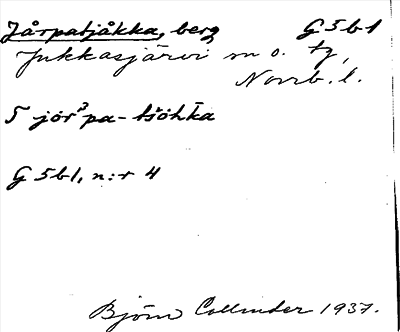 Jårpatjåkka, berg G5b1
Jukkasjärvi sn o. tg,
Norrb. l.
5 jör³pa-tšöhka
G5b1, n:r 4
Björn Collinder 1937.